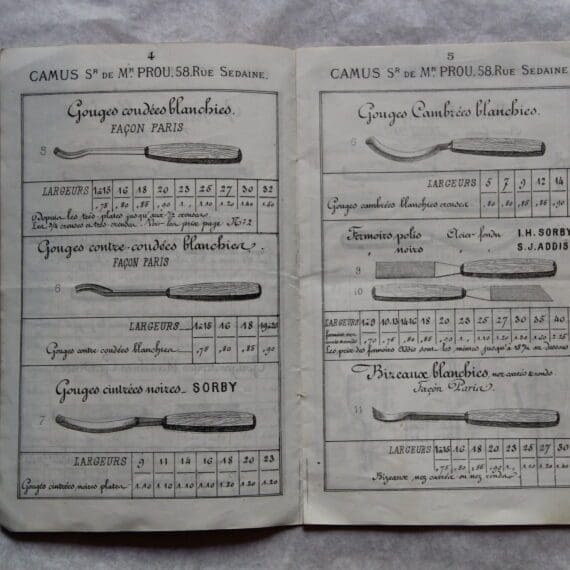 4
CAMUS Sr DE Mr PROU. 58, RUE SEDAINE.
Gouges coudées blanchies.
FAÇON PARIS
5
LARGEURS 1 à 15 16 18 20 23 25 27 30 32
,75 ,80 ,85 ,90 1.10 1.20
Depuis les très plates jusqu'aux 1/2 creuses
Les 3/4 creuses et très-creuses. Voir les prix page No 2
Gouges contre-coudées blanchies.
FAÇON PARIS
6
LARGEURS 1 à 15 16 18 19 à 20
Gouges contre-coudées blanchies ,75 ,80 ,85 ,90
Gouges cintrées noires. SORBY
7
LARGEURS 9 11 14 16 18 20 23
Gouges cintrées noires plates 1.10 1.10 1.10 1.20 1.20
5
CAMUS Sr DE Mr PROU. 58, RUE SEDAINE
Gouges Cambrées blanchies.
LARGEURS 5 7 9 12 14
Gouges cambrées blanchies creuses ,80 ,85 ,90
Fermoirs polis Acier fondu I.H. SORBY
noirs S.J. ADDIS
9
10
LARGEURS 1 à 9 18 20 23 25 27 30 35 40
,70 ,75 ,80 ,85 ,90
Les prix des fermoirs Addis sont les mêmes
Bizeaux blanchies nez carrés & ronds.
Façon Paris.
11
LARGEURS 1 à 15 16 18 20 23 25 27 30
,75 ,80 ,85 ,90 1. 1.10 1.20
Bizeaux nez carrés ou nez ronds